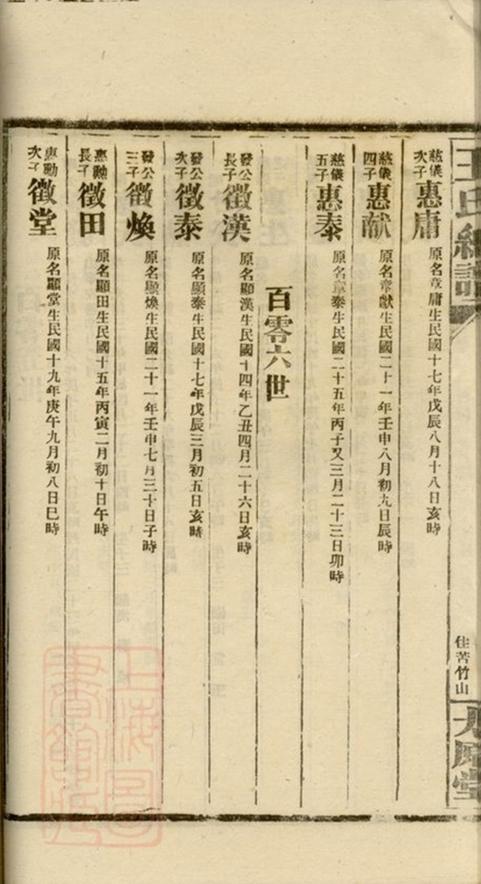 慈儀次子惠庸原名章庸生民國十七年戊辰八月十八日亥時
慈儀四子惠献原名章獻生民國二十一年壬申八月初九日辰時
慈儀五子惠泰原名章泰生民國二十五年丙子又三月二十三日卯時
百零六世
發公長子徵漢原名顯漢生民國十四年乙丑四月二十六日亥時
發公次子徵泰原名顯泰生民國十七年戊辰三月初五日亥時
發公三子徵煥原名顯煥生民國二十一年壬申七月三十日子時
惠勳長子徵田原名顯田生民國十五年丙寅二月初十日午時
惠勳次子徵堂原名顯堂生民國十九年庚午九月初八日巳時
王氏
住苦竹山
堂
上海圖書館